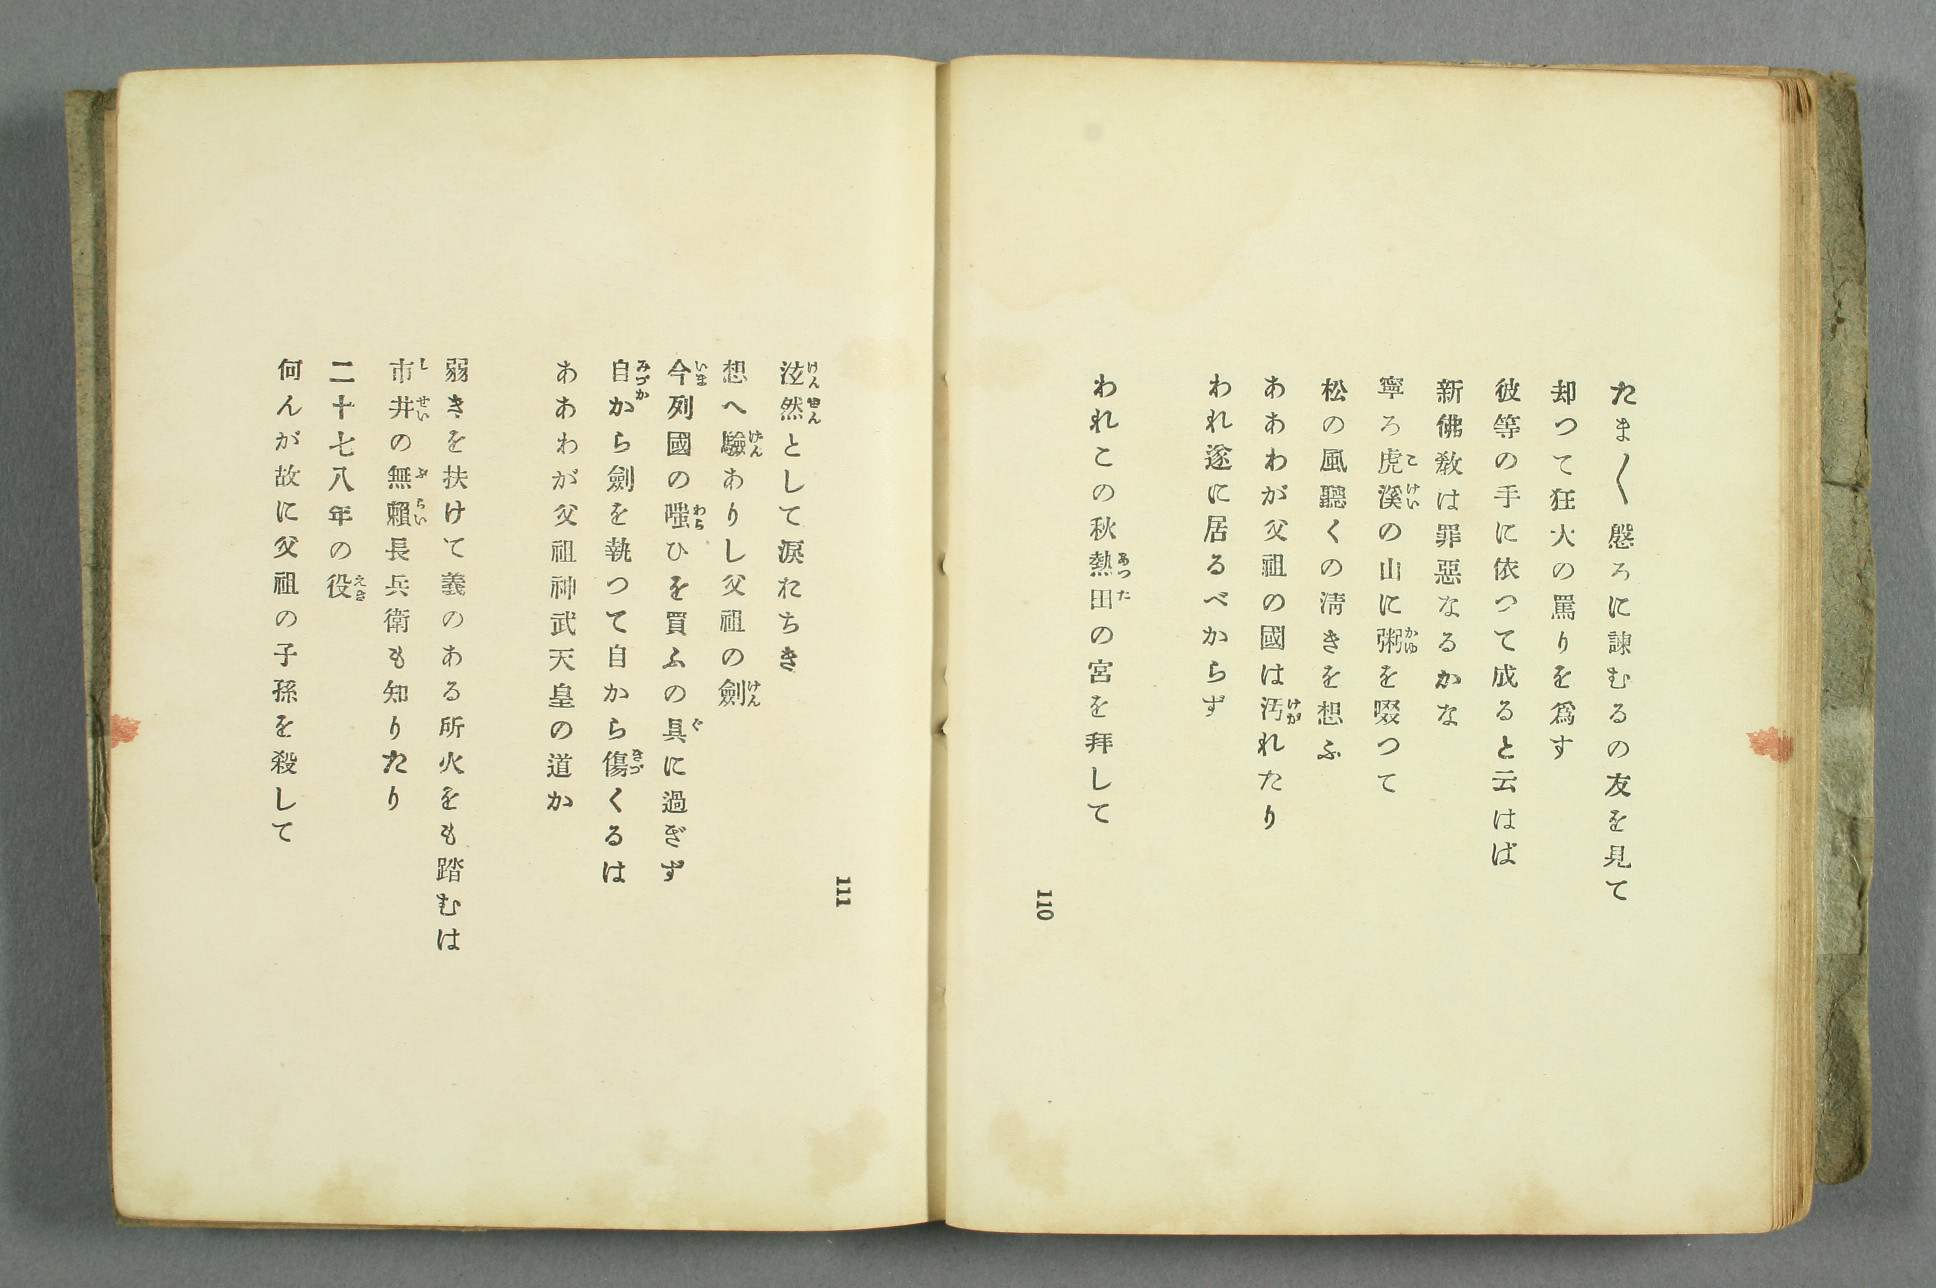 たま〱慇ろに諫むるの友を見て
却つて狂犬の罵りを爲す
彼等の手に依つて成ると云はば
新佛敎は罪惡なるかな
寧ろ虎溪の山に粥を啜つて
松の風聽くの淸きを想ふ
ああわが父祖の國は汚れたり
われ遂に居るべからず
われこの秋熱田の宮を拜して
110
泫然として淚おちき
想へ驗ありし父祖の劍
今列國の嗤ひを買ふの具に過ぎず
自から劍を執つて自から傷くるは
ああわが父祖神武天皇の道か
弱きを扶けて義のある所火をも踏むは
市井の無賴長兵衛も知りたり
二十七八年の役
何んが故に父祖の子孫を殺して
111